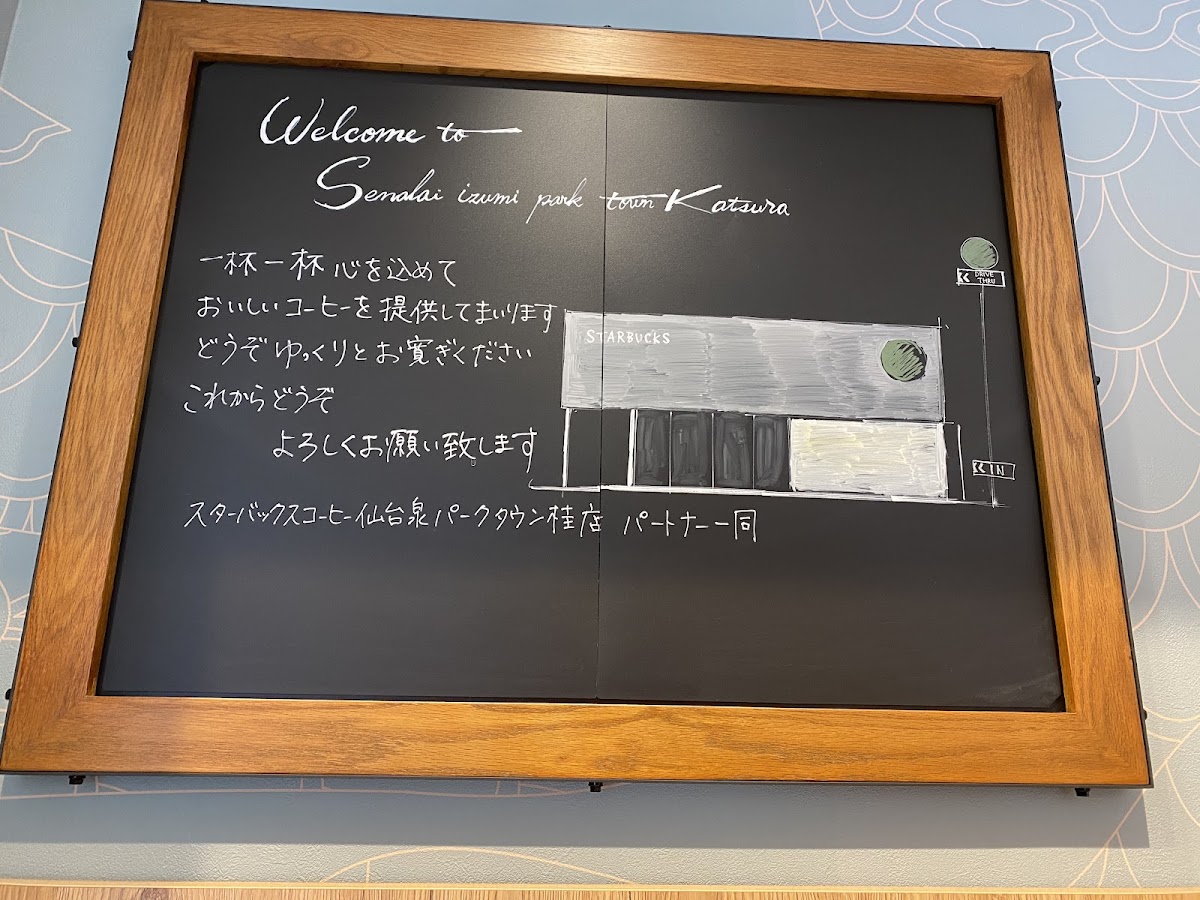 Welcome to
Sendai izumi park town Katsura
一杯一杯 心を込めて
おいしいコーヒーを提供してまいります
どうぞゆっくりとお寛ぎください
これからどうぞ
よろしくお願い致します
スターバックスコーヒー仙台泉パークタウン桂店 パートナー一同
STARBUCKS
DRIVE
THRU
IN